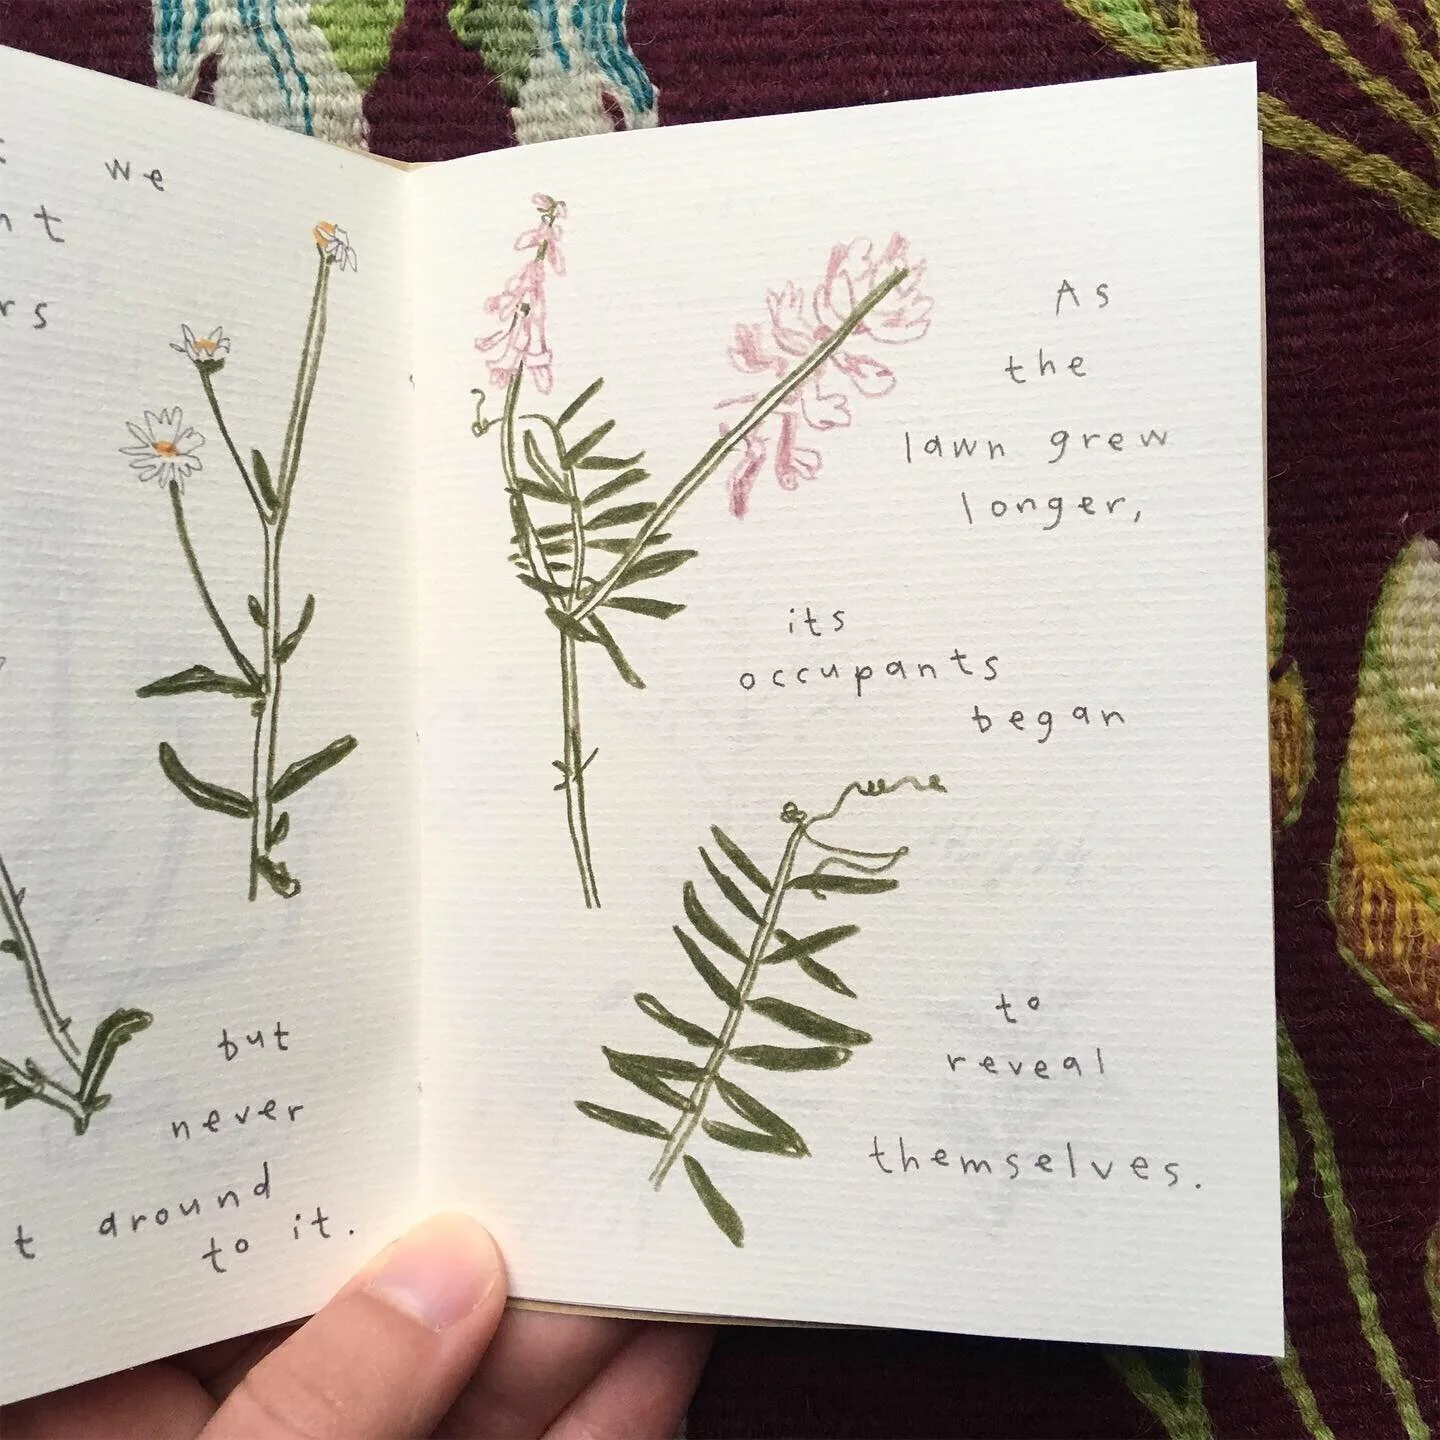 we
but
never
around
to it.
As
the
lawn grew
longer,
its
occupants
began
to
reveal
themselves.